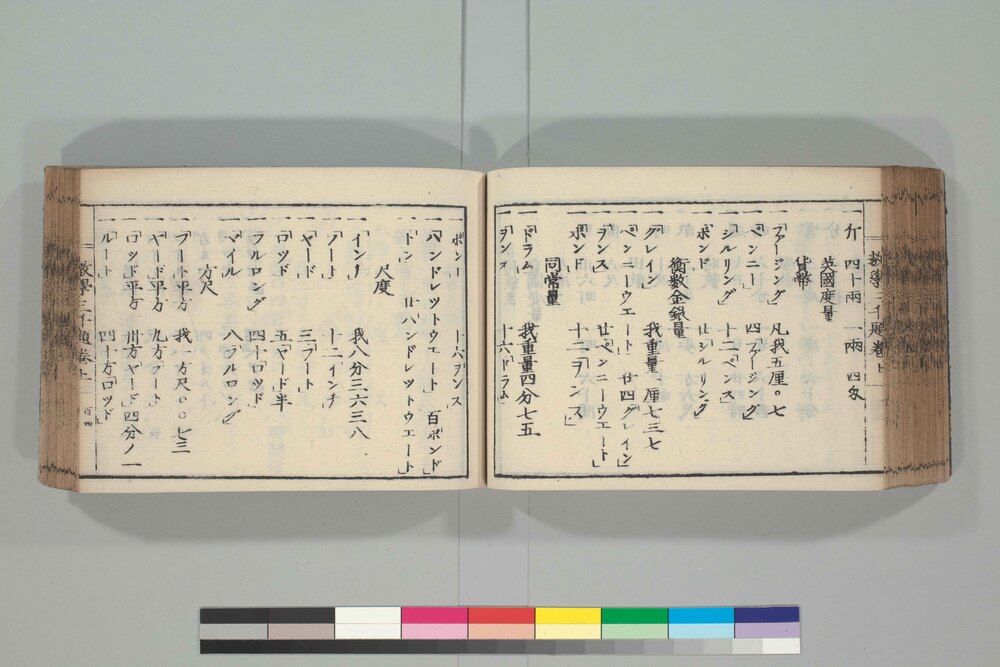 一 斤 四十兩 一兩 四匁
英國度量
貨幣
一「ファージング」 凡我五厘〇七
一「ペンニー 四「ファージング」
一「シルリング」 十二「ペンス」
一「ポンド 廿「シルリング」
衡數金銀量
一「グレイン 我重量 厘七三七
一「ペンニーウエート」 廿四「グレイン」
一「ヲンス 廿「ペンニーウエート」
一「ポンド」 十二「ヲンス」
同常量
一「ドラム 我重量四分七五
一「ヲンス 十六「ドラム」
一「ポンド 十六「ヲンス
一「ハンドレツトウエート」 百「ポンド」
一「トン」 廿「ハンドレツトウエート」
尺度
一「インチ 我八分三六三八
一「フート 十二「インチ
一「ヤード 三「フート
一「ロツド 五「ヤード」半
一「フルロング」 四十「ロツド
一「マイル 八「フルロング」
方尺
一「フート平方 我一方尺〇〇七三
一「ヤード平方 九方「フート」
一「ロツド平方 卅方「ヤード」四分ノ一
一「ルート 四十方「ロツド